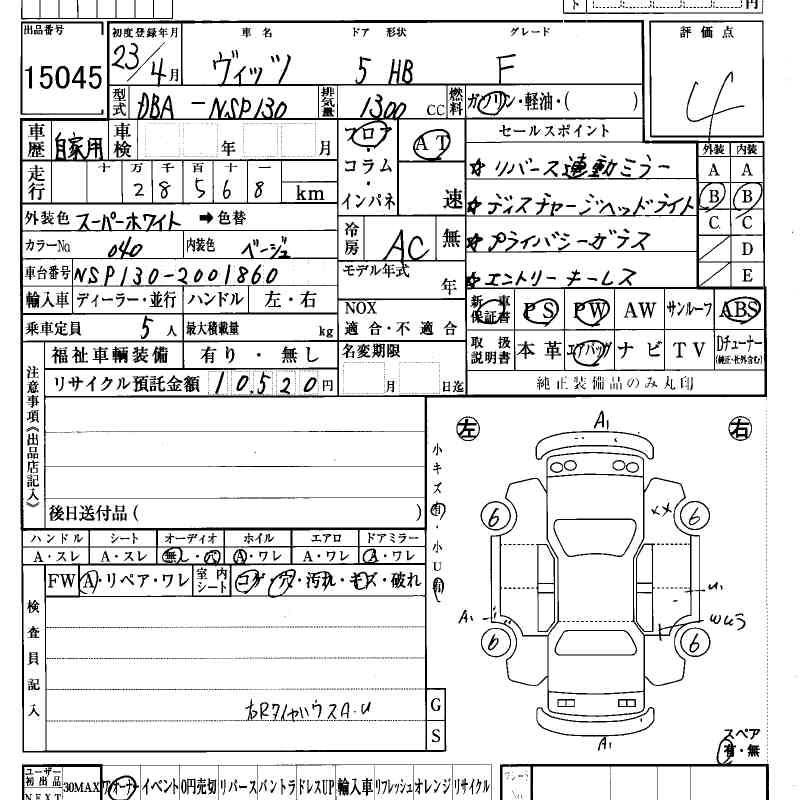 出品番号 初度登録年月 車名 ドア 形状 グレード 評価点
15045 23/4月 ヴィッツ 5 HB F 4
型式 DBA-NSP130 排気量 1300 CC 燃料 ガソリン・軽油・( )
車歴 自家用 車検 年 月 フロア・コラム・インパネ AT 速 セールスポイント 外装 内装
走行 十 万 千 百 十 一
2 8 5 6 8 km
☆リバース連動ミラー A A
☆ディスチャージヘッドライト B B
外装色 スーパーホワイト ➡色替 冷房 AC 無 ☆プライバシーガラス C C
カラーNo 040 内装色 ベージュ D
車台番号 NSP130-2001860 モデル年式 年 ☆エントリーキーレス E
輸入車 ディーラー・並行 ハンドル 左・右 NOX 適合・不適合 新車保証書 PS PW AW サンルーフ ABS
乗車定員 5人 最大積載量 kg
福祉車輌装備 有り・無し 名変期限 月 日迄 取扱説明書 本革 エアバッグ ナビ TV Dチューナー(純正・社外含む)
リサイクル預託金額 10,520円 純正装備品のみ丸印
注意事項《出品店記入》
後日送付品( )
小キズ有・小U有
左 A1 右
6 XX 6
U1
A1 WU3
6 6
A1
ハンドル シート オーディオ ホイル エアロ ドアミラー
A・スレ A・スレ 無し・穴 A・ワレ A・ワレ A・ワレ
FW A・リペア・ワレ 室内シート コゲ・穴・汚れ・キズ・破れ
検査員記入
右RタイヤハウスA.U
G
S
スペア
有・無
ユーザー初出品 NEXT 30MAX ワンオーナー イベント 0円売切 リバース バントラ ドレスUP 輸入車 リフレッシュ オレンジ リサイクル